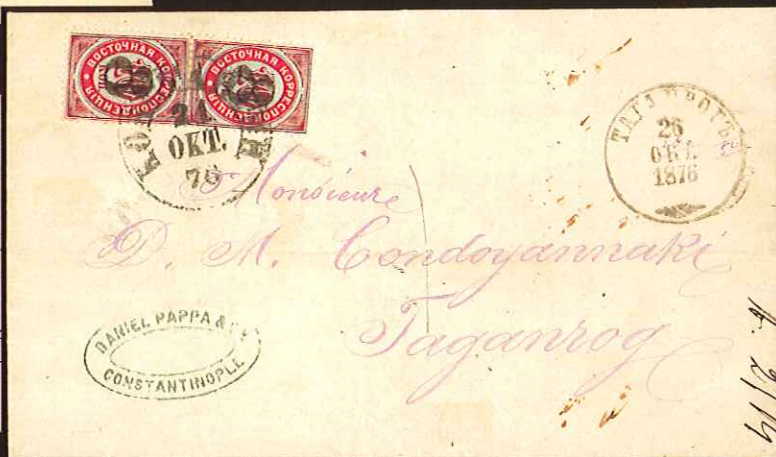 ВОСТОЧНАЯ КОРРЕСПОНДЕНЦІЯ
ВОСТОЧНАЯ КОРРЕСПОНДЕНЦІЯ
24
ОКТ.
76
ТАГАНРОГЪ
26
ОКТ.
1876
Monsieur
D. M. Condoyannaki
Taganrog
DANIEL PAPPA &
CONSTANTINOPLE